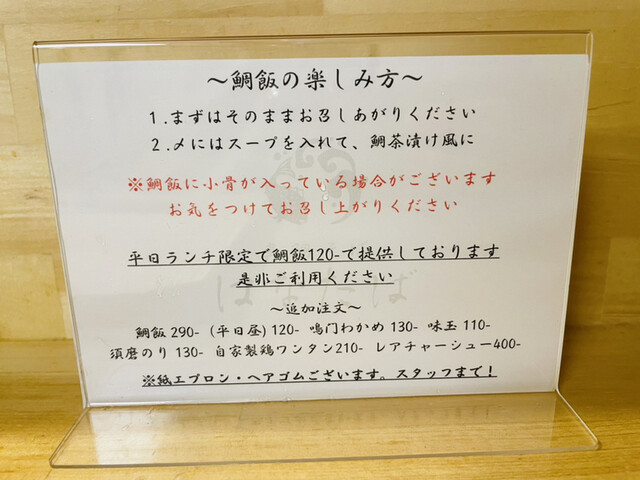 ～鯛飯の楽しみ方～
1.まずはそのままお召しあがりください
2.〆にはスープを入れて、鯛茶漬け風に
※鯛飯に小骨が入っている場合がございます
お気をつけてお召し上がりください
平日ランチ限定で鯛飯120-で提供しております
是非ご利用ください
～追加注文～
鯛飯 290- (平日昼) 120- 鳴門わかめ 130- 味玉 110-
須磨のり 130- 自家製鶏ワンタン210- レアチャーシュー400-
※紙エプロン・ヘアゴムございます。スタッフまで！